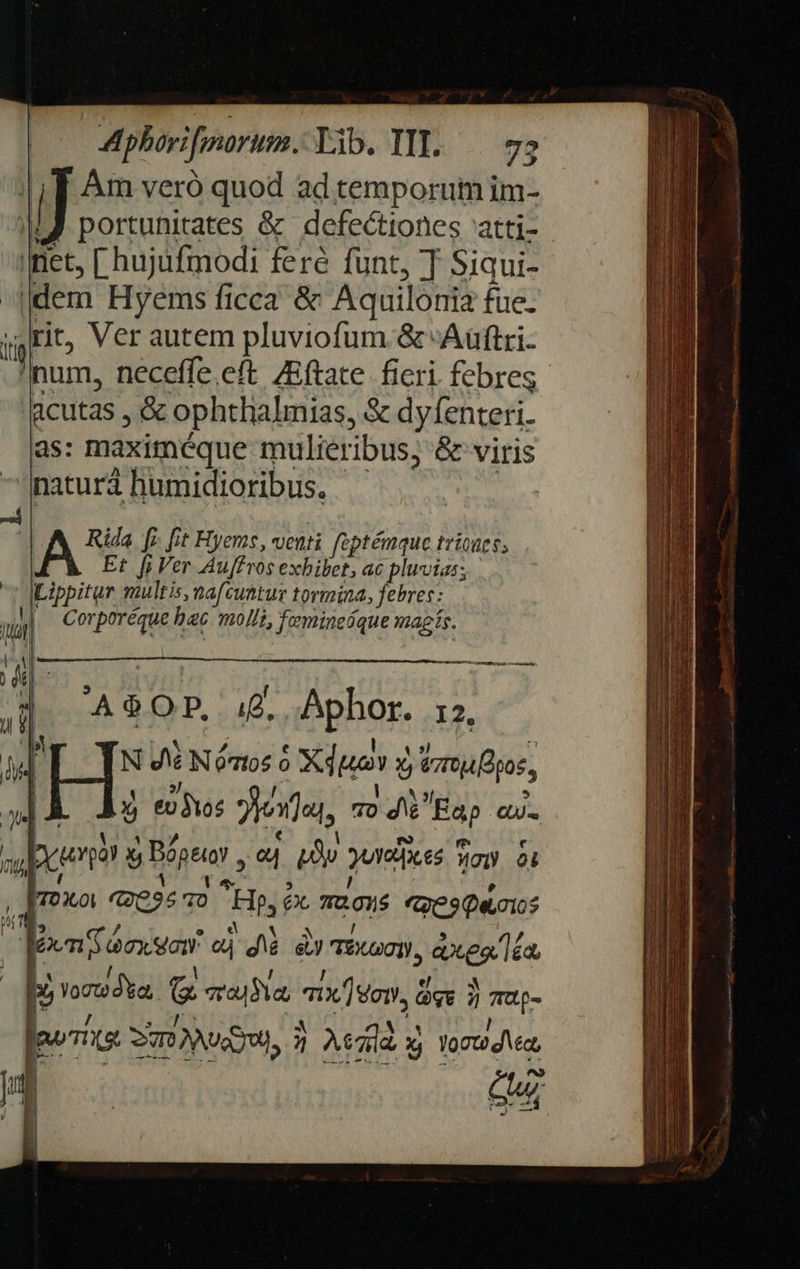 Aphorismorum. Lib. III. 73
JAm verò quod ad temporum im-
portunitates & defectiones atti-
net, [hujusmodi ferè sunt,] Siqui-
dem Hyems sicca & Aquilonia fue-
rit, Ver autem pluviosum & Austri-
num, necesse est Æstate fieri febres
acutas, & ophthalmias, & dysenteri-
as: maximéque mulieribus, & viris
naturâ humidioribus.
ARida si sit Hyems, venti septémque triones,
Et si Ver Austros exhibet, ac pluvias;
Lippitur multis, nascuntur tormina, febres:
Corporéque hæc molli, fœmineóque magís.
ἈΦΟΡ. ιβ. Aphor. 12.
ἪΝ δὲ Νότιος ὁ Χειμὼν καὶ ἔπομβρος,
καὶ εὔδιος γένηται, τὸ δὲ Ἔαρ αὐ-
χμηρὸν καὶ Βόρειον, αἱ μὲν γυναῖκες ᾗσιν οἱ
τόκοι πρὸς τὸ Ἦρ, ἐκ πάσης προφάσιος
ἐκτιτρώσκουσιν· αἱ δὲ ἂν τέκωσιν, ἀκρατέα
καὶ νοσώδεα τὰ παιδία τίκτουσιν, ὥστε ἢ παρ-
αυτίκα ἀπόλλυσθαι, ἢ λεπτὰ καὶ νοσώδεα
ζῆν